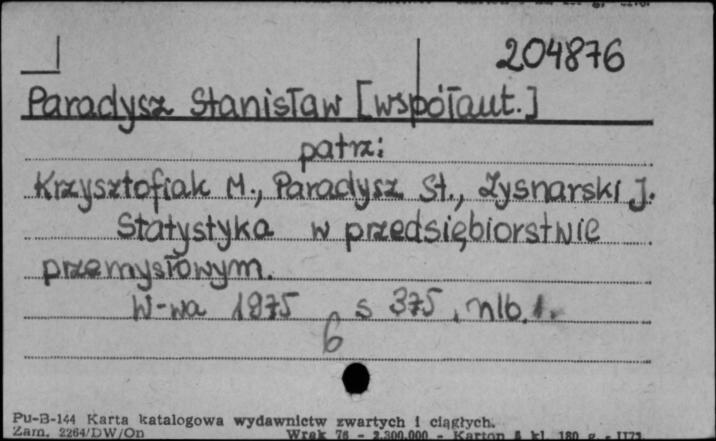 204876
Paradysz Stanisław [współaut.]
patrz:
Krzysztofiak M., Paradysz St., Łysnarski J.
Statystyka w przedsiębiorstwie
przemysłowym.
W-wa 1975 s 375, nlb. 1.
6
Pu-B-144 Karta katalogowa wydawnictw zwartych i ciągłych.
Zam. 2264/DW/On Wrak 76 - 2.300.000 - Karton kl. 180 g.